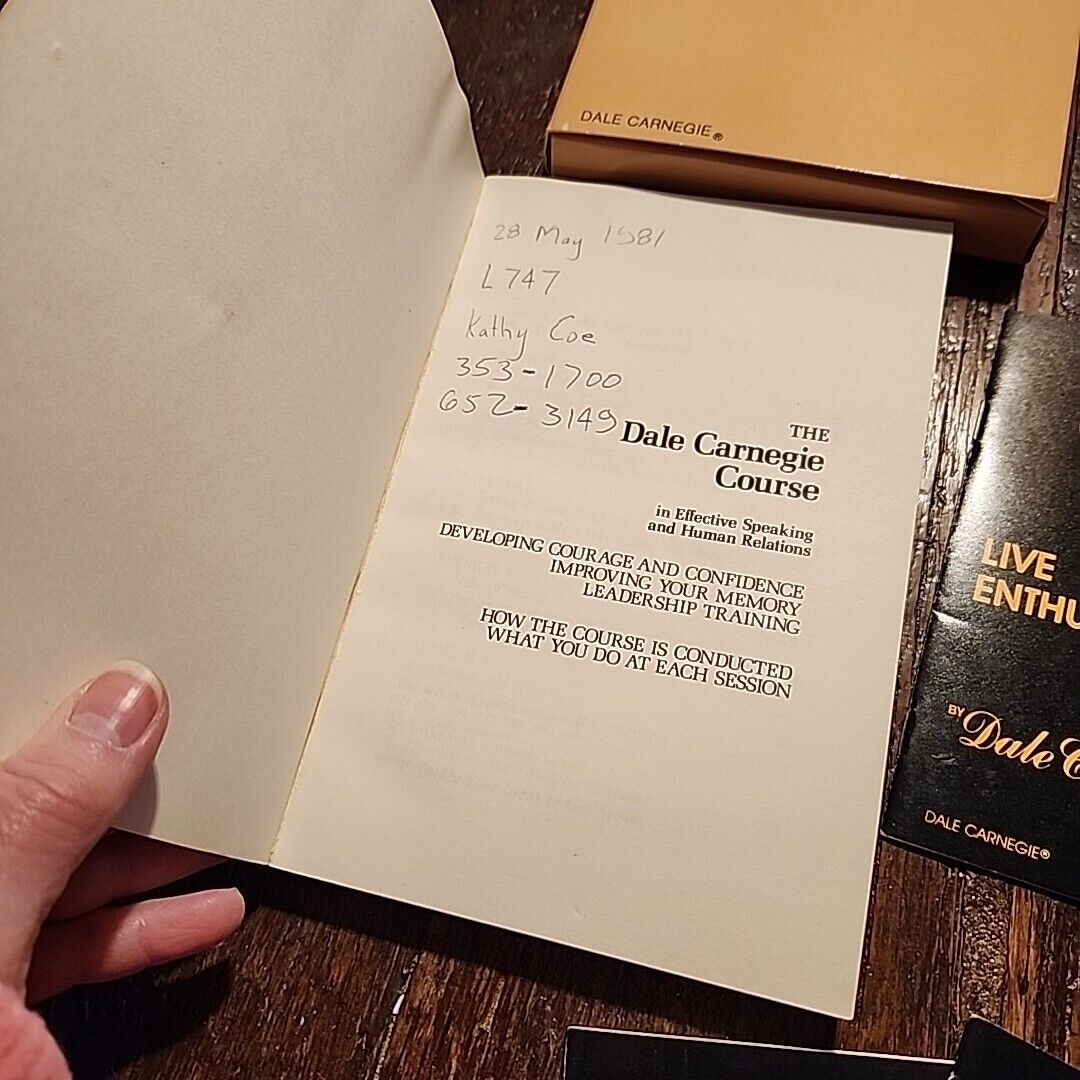 DALE CARNEGIE®
28 May 1981
L 747
Kathy Coe
353-1700
652-3149
THE
Dale Carnegie
Course
in Effective Speaking
and Human Relations
DEVELOPING COURAGE AND CONFIDENCE
IMPROVING YOUR MEMORY
LEADERSHIP TRAINING
HOW THE COURSE IS CONDUCTED
WHAT YOU DO AT EACH SESSION
LIVE
ENTHU
BY
Dale C
DALE CARNEGIE®